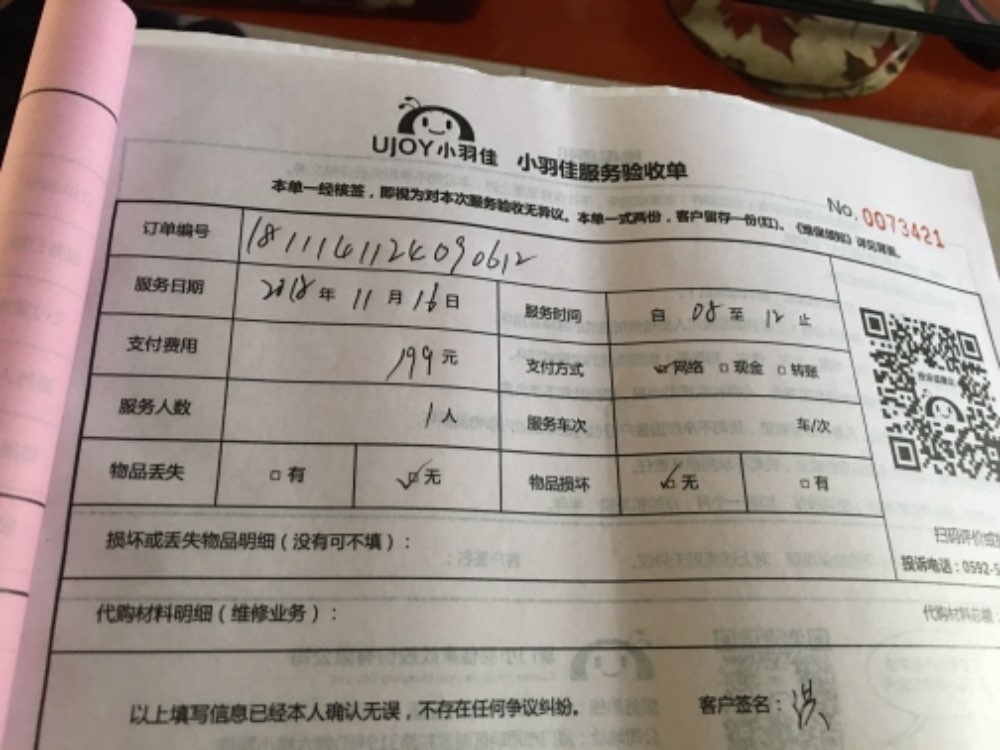 UJOY小羽佳 小羽佳服务验收单
No. 0073421
本单一经核签，即视为对本次服务验收无异议。本单一式两份，客户留存一份(红)。《维保须知》详见背面。
订单编号 1811141124090612
服务日期 2018年 11月 16日 服务时间 自 08 至 12 止
支付费用 199元 支付方式 网络 现金 转账
服务人数 1人 服务车次 车/次
物品丢失 有 无 物品损坏 无 有
损坏或丢失物品明细（没有可不填）：
扫码评价或投
投诉电话：0592-5
代购材料明细（维修业务）： 代购材料总额：
以上填写信息已经本人确认无误，不存在任何争议纠纷。 客户签名：洪